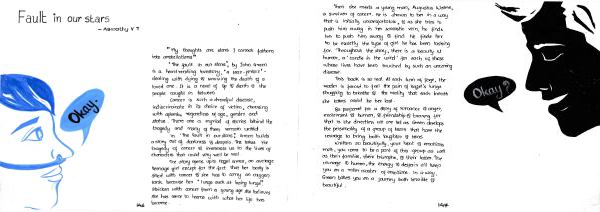 Fault in our stars
- Aswathy V T
"My thoughts are stars I cannot fathom
into constellations"
"The fault in our stars", by John Green
is a heartwrenching tweensing, "a tear-jerker"-
dealing with dying & surviving the death of a
loved one. It is a novel of life & death & the
people caught in between.
Cancer is such a dreadful disease,
indiscriminate in its choice of victims, choosing
with aplomb, regardless of age, gender and
status. There are a myriad of stories behind the
tragedy and many of them remain untold.
In "The fault in our stars", Green builds
a story out of darkness & despair. He takes the
tragedy of cancer & immerses us in the lives of
characters that could very well be real.
The story opens upto Hazel Grace, an average
teenage girl except for the fact that her body is
filled with cancer & she has to carry an oxygen
tank because her "lungs suck at being lungs".
Stricken with cancer from a young age she believes
she has come to terms with what her life has
become.
Okay.
Then she meets a young man, Augustus Waters,
a survivor of cancer. He is drawn to her in a way
that is initially uncomfortable, & as she tries to
push him away in her sarcastic vein, he finds
her to push him away & he finds her
to be exactly the type of girl he has been looking
for. Throughout the story, there is a beauty of
humour, a candle in the wind for each of those
whose lives have been touched by such an uncaring
disease.
This book is so real. At each turn of page, the
reader is forced to feel the pain of Hazel's lungs
struggling to breathe & the reality that each breath
she takes could be her last.
Be prepared for a story of romance & anger,
excitement & humour, & friendship & bravery for
that is the direction we are led as Green develops
the personality of a group of teens that have the
courage to bring both laughter & tears.
Written so beautifully, your heart & emotions
melt, you come to be a part of this group as well
as their families, their triumphs, & their losses. The
courage & humour, the energy & despair all takes
you on a roller coaster of emotions. In a way,
Green takes you on a journey both terrible &
beautiful.
Okay?